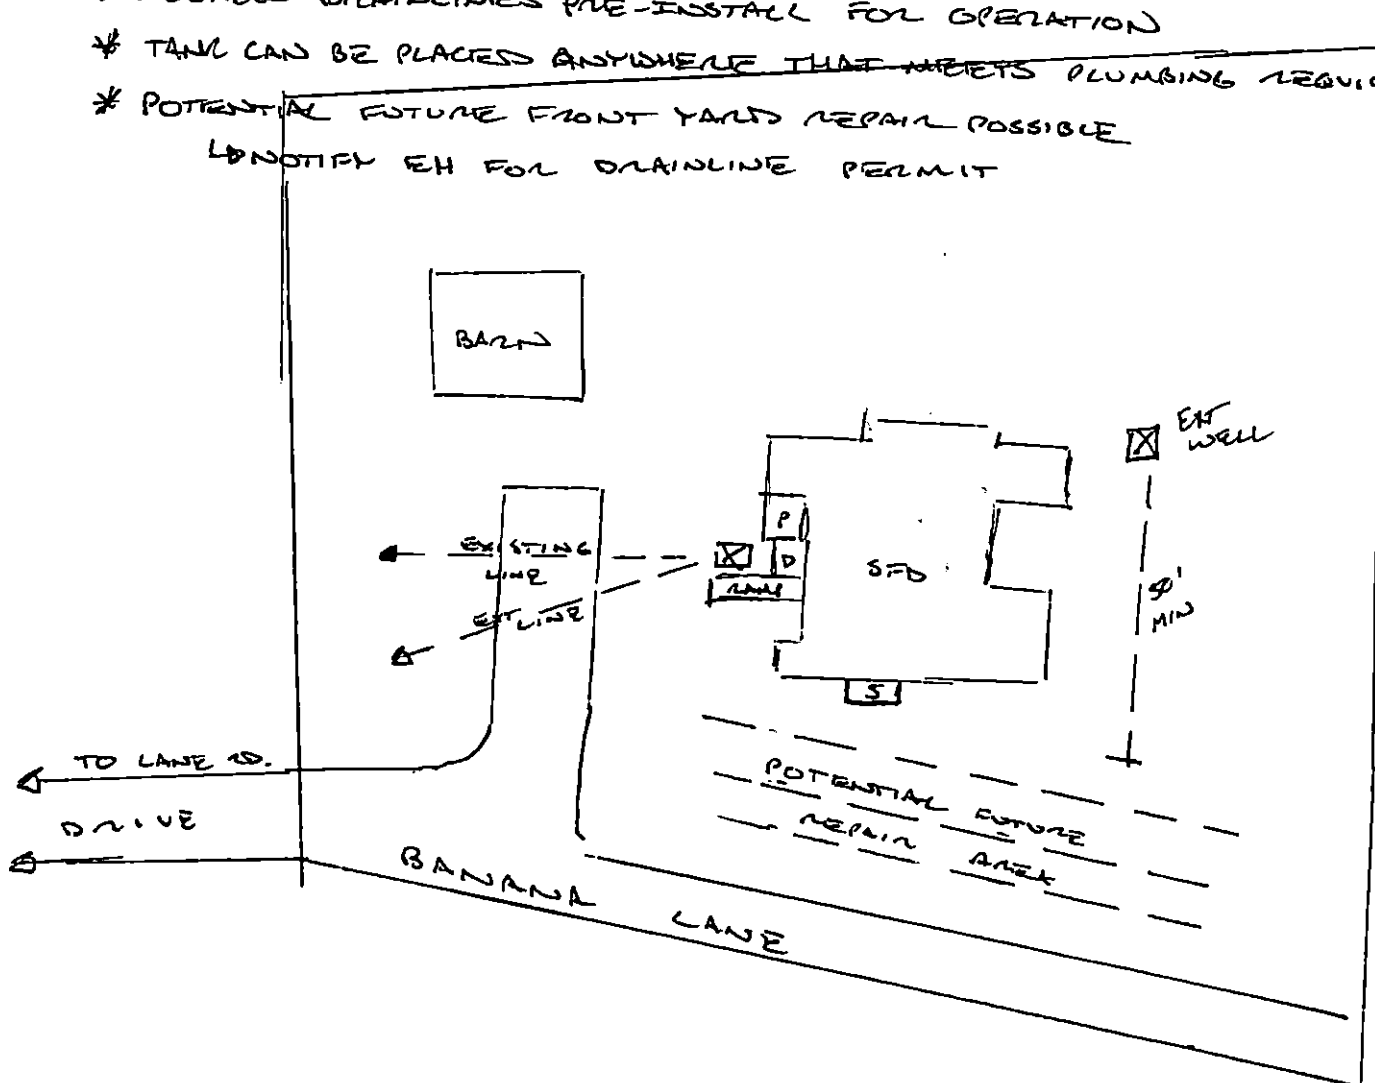 DRAINLINES PRE-INSTALL FOR OPERATION
* TANK CAN BE PLACED ANYWHERE THAT MEETS PLUMBING
* POTENTIAL FUTURE FRONT YARD REPAIR POSSIBLE
↳ NOTIFY EH FOR DRAINLINE PERMIT
BARN
EXT
WELL
P
EXISTING
LINE
D
SFD
RAMP
EXT LINE
50'
MIN
S
TO LANE RD.
POTENTIAL FUTURE
REPAIR AREA
DRIVE
BANANA LANE